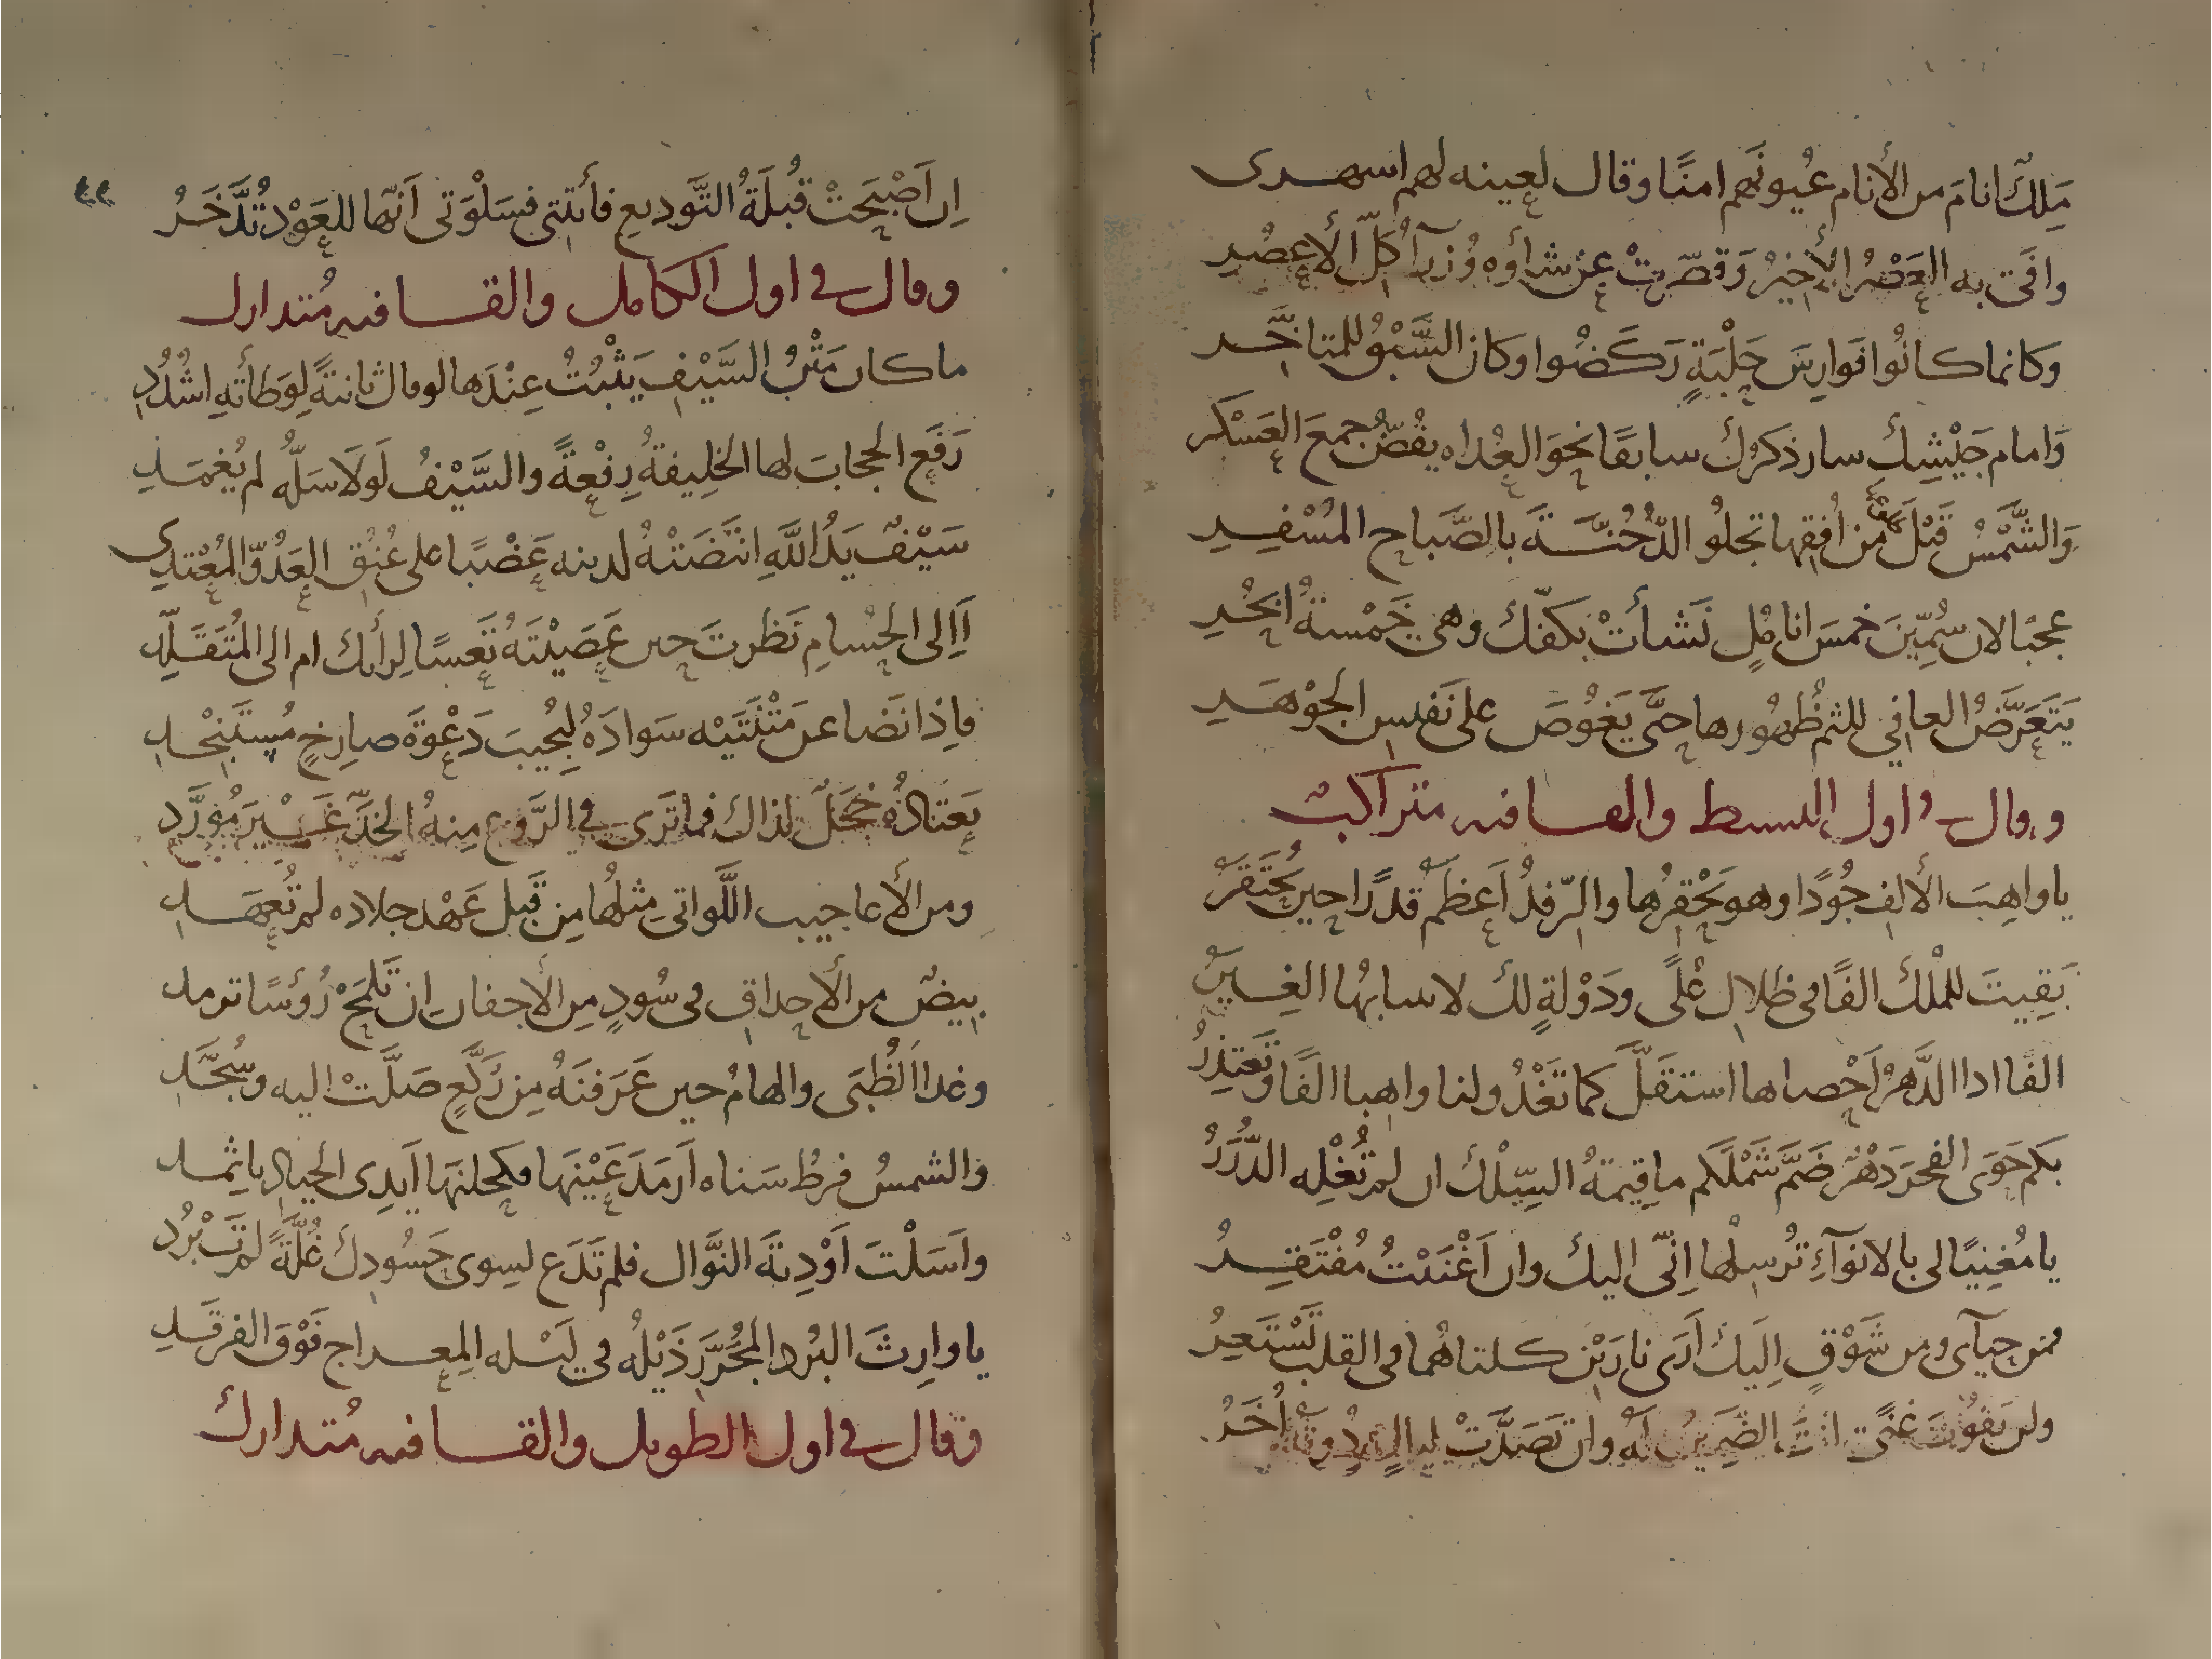 مَلِكٌ انامَ من الأنام عُيونَهم امنًا وقال لعينه لهم اسهدى
وافَى به العَصْرُ الأَخِيرُ وَقصّرتْ عن شأوِه وُزرآ كلّ الأعصُرِ
وكانما كانُوا فوارِسَ حَلْبَةٍ رَكَضُوا وكان السَّبْقُ للمتاخَّر
وَامام جَيْشِك سار ذكرُكَ سابقًا نحوَ العُداه يفُضّ جمعَ العَسْكَر
وَالشَّمْسُ قَبْلَ من اُفقِها تجلُو الدُّجُنّةَ بالصَّباح المُسْفِرِ
عجبًا لان سُمِّينَ خمسَ اناملٍ نَشأتْ بكفّك وهى خَمْسةُ ابحُرِ
يَتَعرَّضُ العافي للثم ظُهُورها حتَّى يَغُوصَ على نَفيس الجوْهَرِ
وقال في اول البسيط والقافيه متراكبٌ
يا واهِبَ الألافِ جُودًا وهو يَحْقِرُها والرّفدُ اَعظمُ قدرًا حين يُحْتَقَرُ
بَقِيتَ للمُلْك الفًا في ظلالِ عُلًى ودَوْلةٍ لكَ لا سابها الغِيَرُ
الفًا اذا الدَّهْرُ اَحْصاها استقلَّ كما تَغْدُو لنا واهبا الفًا وتَعتذِرُ
بكم حَوَى الفخرَ دَهْرٌ ضَمَّ شَمْلَكم ما قِيمةُ السِّلْك ان لم تُغْلِه الدُّرَرُ
يا مُغنِيًا لى بالانوآءِ تُرسِلُها اِنّى اليكَ وان اَغْنَيْتُ مُفْتَقِرُ
فمن حيآى ومن شَوْقٍ اِلَيكَ اَرَى نارَيْن كلتاهُما في القلب تَسْتَعِرُ
ولن يَفُوتَ غنًى انتَ الضَمِيرُ لَه وان تَصَدَّتْ ليالٍ دونَهُ اُخَرُ
اِن اَصْبَحَتْ قُبلَةُ التَّوديعِ فأتتني فسَلْوَتى اَنّها للعَوْد تُدَّخَرُ
وقال في اول الكامل والقافيه مُتدارك
ما كان مَتْنُ السَّيْفِ يَثْبُتُ عِنْدَها لو قال ثانيةً لِوَطأتهِ اشدُدِ
رَفَع الحجابَ لها الخلِيفةُ رِفْعةً والسَّيْفُ لَولَا سَلُّهُ لم يُغمَدِ
سَيْفٌ يَدُ اللَّهِ انتَضَتْهُ لدينه عَضْبًا على عُنُقِ العَدُوّ المُعْتدِى
اَاِلى الحُسامِ نَظرتَ حين عَصَيْتَهُ تَعسًا لِرأيك ام الى المُتَقَلِّدِ
فاِذا نَضا عن مَتْنَتَيْه سَوادَهُ لِيُجيبَ دَعْوةَ صارِخٍ مُستَنْجِدِ
يَعتادُهُ خَجَلٌ لذاك فما تَرَى في الرَّوعِ مِنهُ الخدَّ غَيْرَ مُوَرَّدِ
ومن الأعاجيب اللَّواتى مِثلُها مِن قَبل عَهْد جلاده لم تُعهَدِ
بيضٌ من الأحداقِ في سُودٍ مِن الأجفان اِن تَلْمَحْ رُؤسًا ترمد
وغدا الظُبَى والهامُ حين عَرَفنَهُ مِن رُكَّعٍ صَلَّتْ اليه وسُجَّدِ
والشمسُ فرطُ سَناه اَرمَدَ عَيْنَها فكحلنَها اَيدِى الجيادِ باثمد
واَسَلْتَ اَوْدِيةَ النَّوال فلم تَدَع لسِوى حَسُودِكَ غُلّةً لم تَبْرُد
يا وارِثَ البُرد المُجَرَّرِ ذَيْلُه في لَيْله المِعراج فَوْقَ الفرقَدِ
وقال في اول الطويل والقافيه مُتدارك